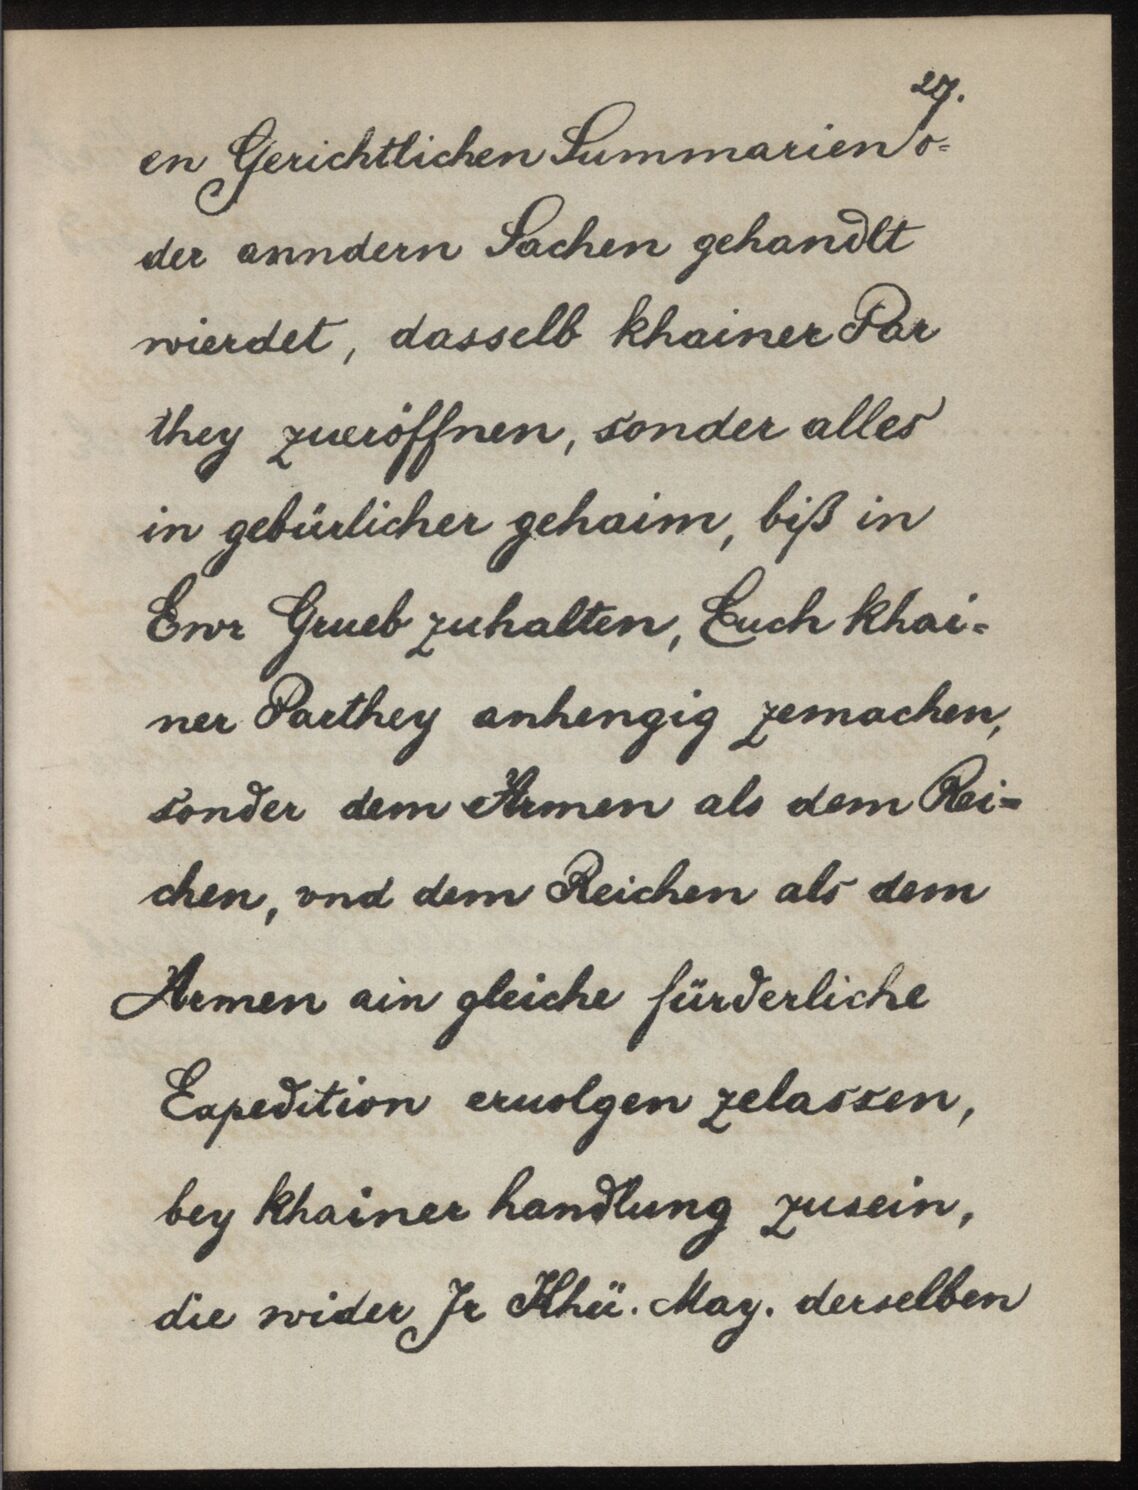 27.
en Gerichtlichen Summarien o=
der anndern Sachen gehandlt
wierdet, dasselb khainer Par
they zueröffnen, sonder alles
in gebürlicher gehaim, biß in
Ewr Grueb zuhalten, Euch khai=
ner Parthey anhengig zemachen,
sonder dem Armen als dem Rei=
chen, vnd dem Reichen als dem
Armen ain gleiche fürderliche
Expedition eruolgen zelassen,
bey khainer handlung zusein,
die wider Jr Khü. May. derselben